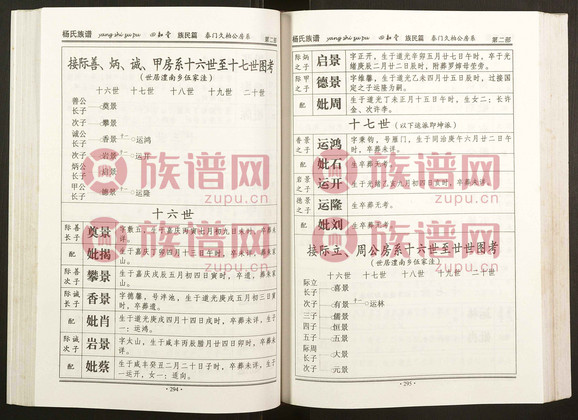 杨氏族谱 yang shi zu pu 四知堂 族民篇 泰门久柏公房系 第二部
接际善、炳、诚、甲房系十六世至十七世图考
(世居澧南乡伍家洼)
十六世 十七世 十八世 十九世 二十世
善公
长子 奠景
次子 攀景
诚公
长子 香景 运鸿
次子 岩景 运开
炳公
长子 启景
甲公
长子 德景 运隆
十六世
际善
长子 奠景
配 妣揭
际善
次子 攀景 生于嘉庆戊辰五月初四日寅时,卒葬未详。
际诚
长子 香景 字德馨,号泮池,生于道光庚戌五月初三日寅时,卒葬未详。
配 妣肖 生于道光庚戌四月十四日戌时,卒葬未详,生子一:运鸿。
际诚
次子 岩景 字太山,生于咸丰丙辰腊月廿四日卯时,卒葬未详。
配 妣蔡 生于咸丰癸丑二月二十日子时,卒葬未详,生子一运开,女一:道向。
- 294 -
杨氏族谱 yang shi zu pu 四知堂 族民篇 泰门久柏公房系 第二部
际炳
之子 启景 字正开,生于道光辛卯五月廿七日午时,卒于光绪庚辰二月廿二日辰时,附葬罗婶母茔旁。
际甲
之子 德景 字维馨,生于道光乙未四月廿五日辰时,过继国定之子运隆为嗣。
配 妣周 生于道光丁未正月十五日午时,生女二:长许金、次许李。
十七世 (以下运派即坤派)
香景
之子 运鸿 字秉钧,号雁门,生于同治庚午六月廿二日午时,卒葬未详。
配 妣石 生卒葬无考。
岩景
之子 运开 生于光绪乙亥九月初四日亥时,卒葬未详。
德景
之子 运隆 生卒葬无考。
配 妣刘 生卒葬无考。
接际立、周公房系十六世至廿世图考
(世居澧南乡伍家洼)
十六世 十七世 十八世 十九世 二十世
际立
长子 喜景
次子 有景 运林
三子 儒景
四子 恒景
五子 五景
际周
长子 大景
次子 元景
- 295 -
族谱网
zupu.cn
族谱网
zupu.cn